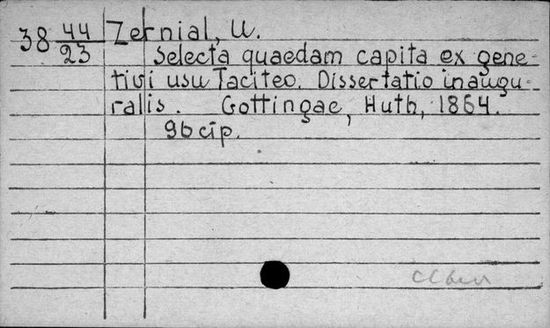 38 44/23 Zernial, U.
Selecta quaedam capita ex gene-
tivi usu Taciteo. Dissertatio inaugu-
ralis. Gottingae, Huth, 1864.
96 cтр.